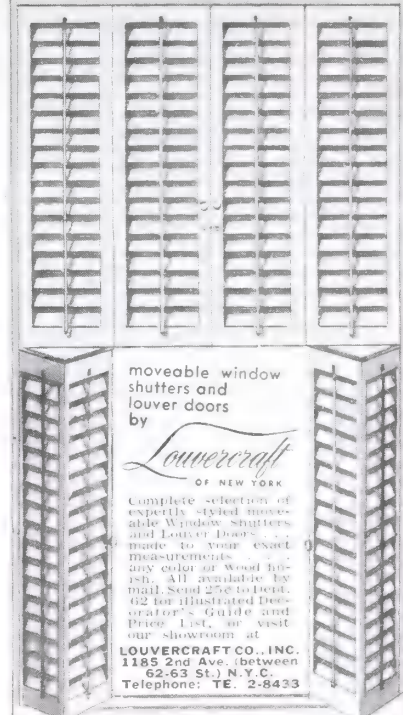 moveable window
shutters and
louver doors
by
Louvercraft
OF NEW YORK
Complete selection of
expertly styled move-
able Window Shutters
and Louver Doors . . .
made to your exact
measurements . . .
any color or Wood fin-
ish. All available by
mail. Send 25¢ to Dept.
62 for illustrated Dec-
orator's Guide and
Price List, or visit
our showroom at
LOUVERCRAFT CO., INC.
1185 2nd Ave. (between
62-63 St.) N.Y.C.
Telephone: TE. 2-8433